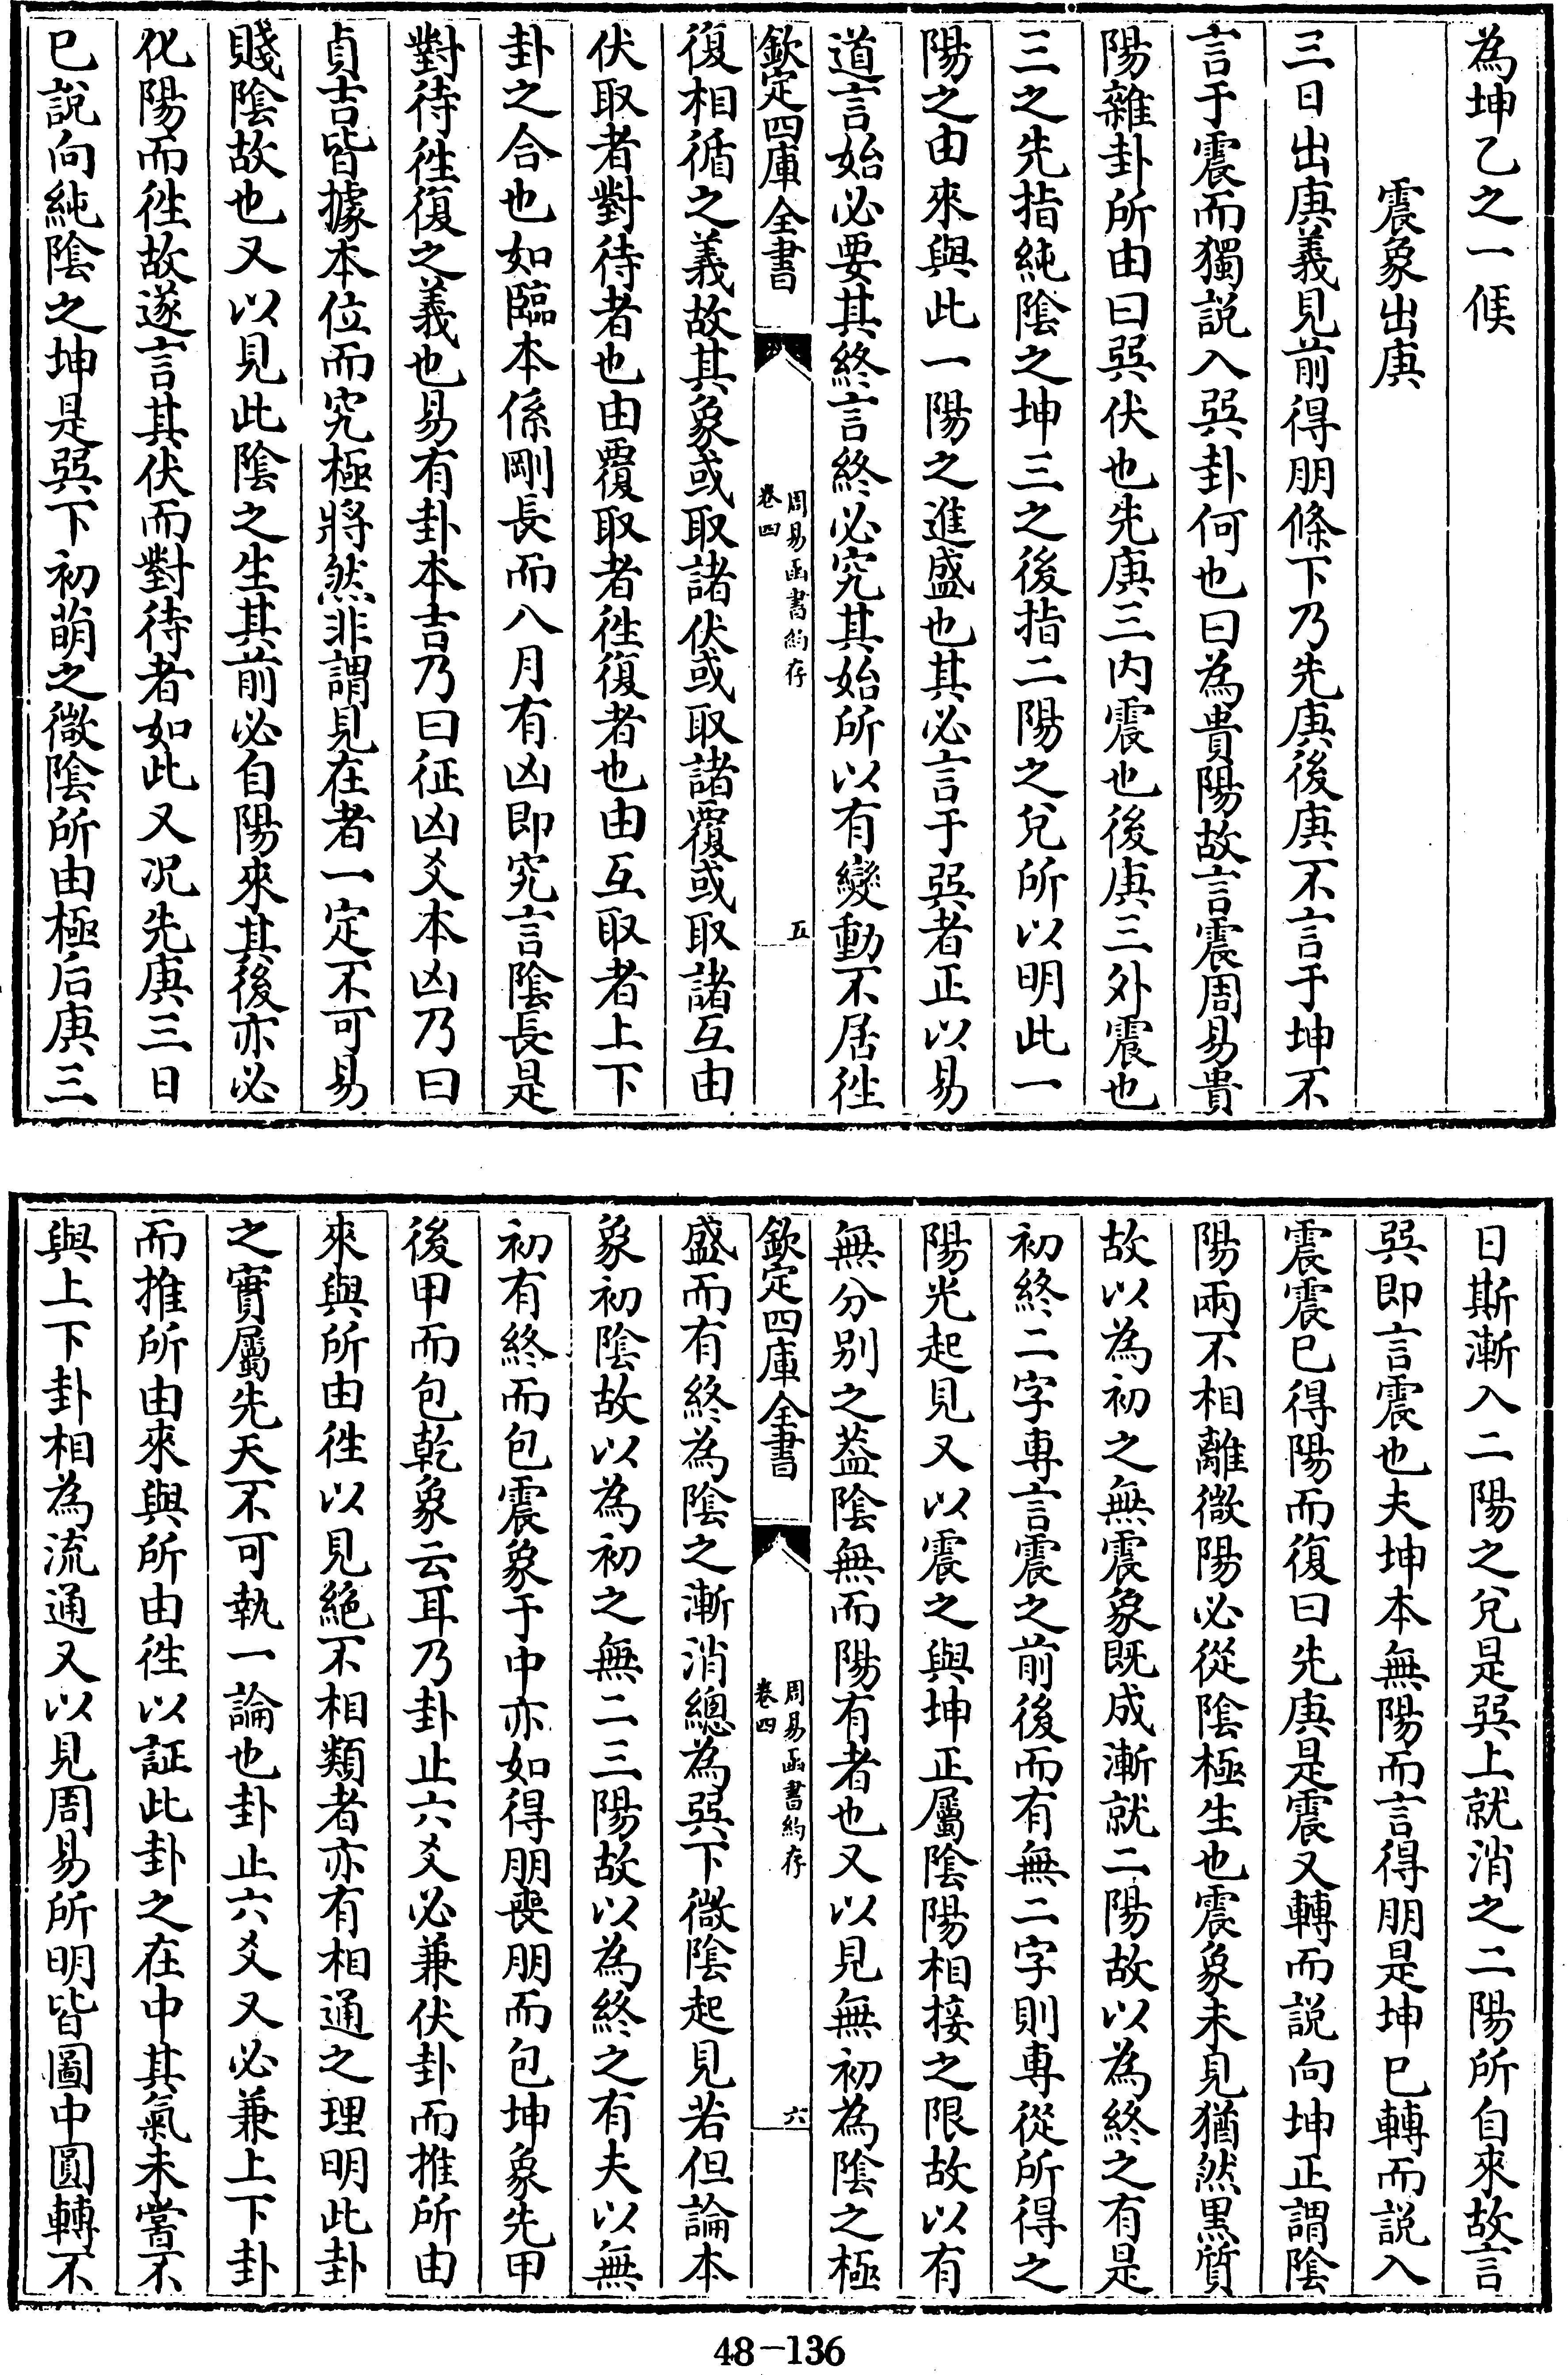 為坤乙之一候
震象出庚
三日出庚義見前得朋條下乃先庚後庚不言于坤不
言于震而獨説入巽卦何也曰為貴陽故言震周易貴
陽雜卦所由曰巽伏也先庚三内震也後庚三外震也
三之先指純陰之坤三之後指二陽之兌所以明此一
陽之由來與此一陽之進盛也其必言于巽者正以易
道言始必要其終言終必究其始所以有變動不居徃
欽定四庫全書
周易函書約存
卷四
五
復相循之義故其象或取諸伏或取諸覆或取諸互由
伏取者對待者也由覆取者徃復者也由互取者上下
卦之合也如臨本係剛長而八月有凶即究言陰長是
對待徃復之義也易有卦本吉乃曰征凶爻本凶乃曰
貞吉皆據本位而究極將然非謂見在者一定不可易
賤陰故也又以見此陰之生其前必自陽來其後亦必
化陽而徃故遂言其伏而對待者如此又况先庚三日
已説向純陰之坤是巽下初萌之微陰所由極后庚三
日斯漸入二陽之兌是巽上就消之二陽所自來故言
巽即言震也夫坤本無陽而言得朋是坤已轉而説入
震震已得陽而復曰先庚是震又轉而説向坤正謂陰
陽兩不相離微陽必從陰極生也震象未見猶然黒質
故以為初之無震象既成漸就二陽故以為終之有是
初終二字專言震之前後而有無二字則專從所得之
陽光起見又以震之與坤正屬陰陽相接之限故以有
無分别之葢陰無而陽有者也又以見無初為陰之極
欽定四庫全書
周易函書約存
卷四
六
盛而有終為陰之漸消總為巽下微陰起見若但論本
象初陰故以為初之無二三陽故以為終之有夫以無
初有終而包震象于中亦如得朋喪朋而包坤象先甲
後甲而包乾象云耳乃卦止六爻必兼伏卦而推所由
來與所由徃以見絶不相類者亦有相通之理明此卦
之實屬先天不可執一論也卦止六爻又必兼上下卦
而推所由來與所由徃以証此卦之在中其氣未嘗不
與上下卦相為流通又以見周易所明皆圖中圓轉不
48-136